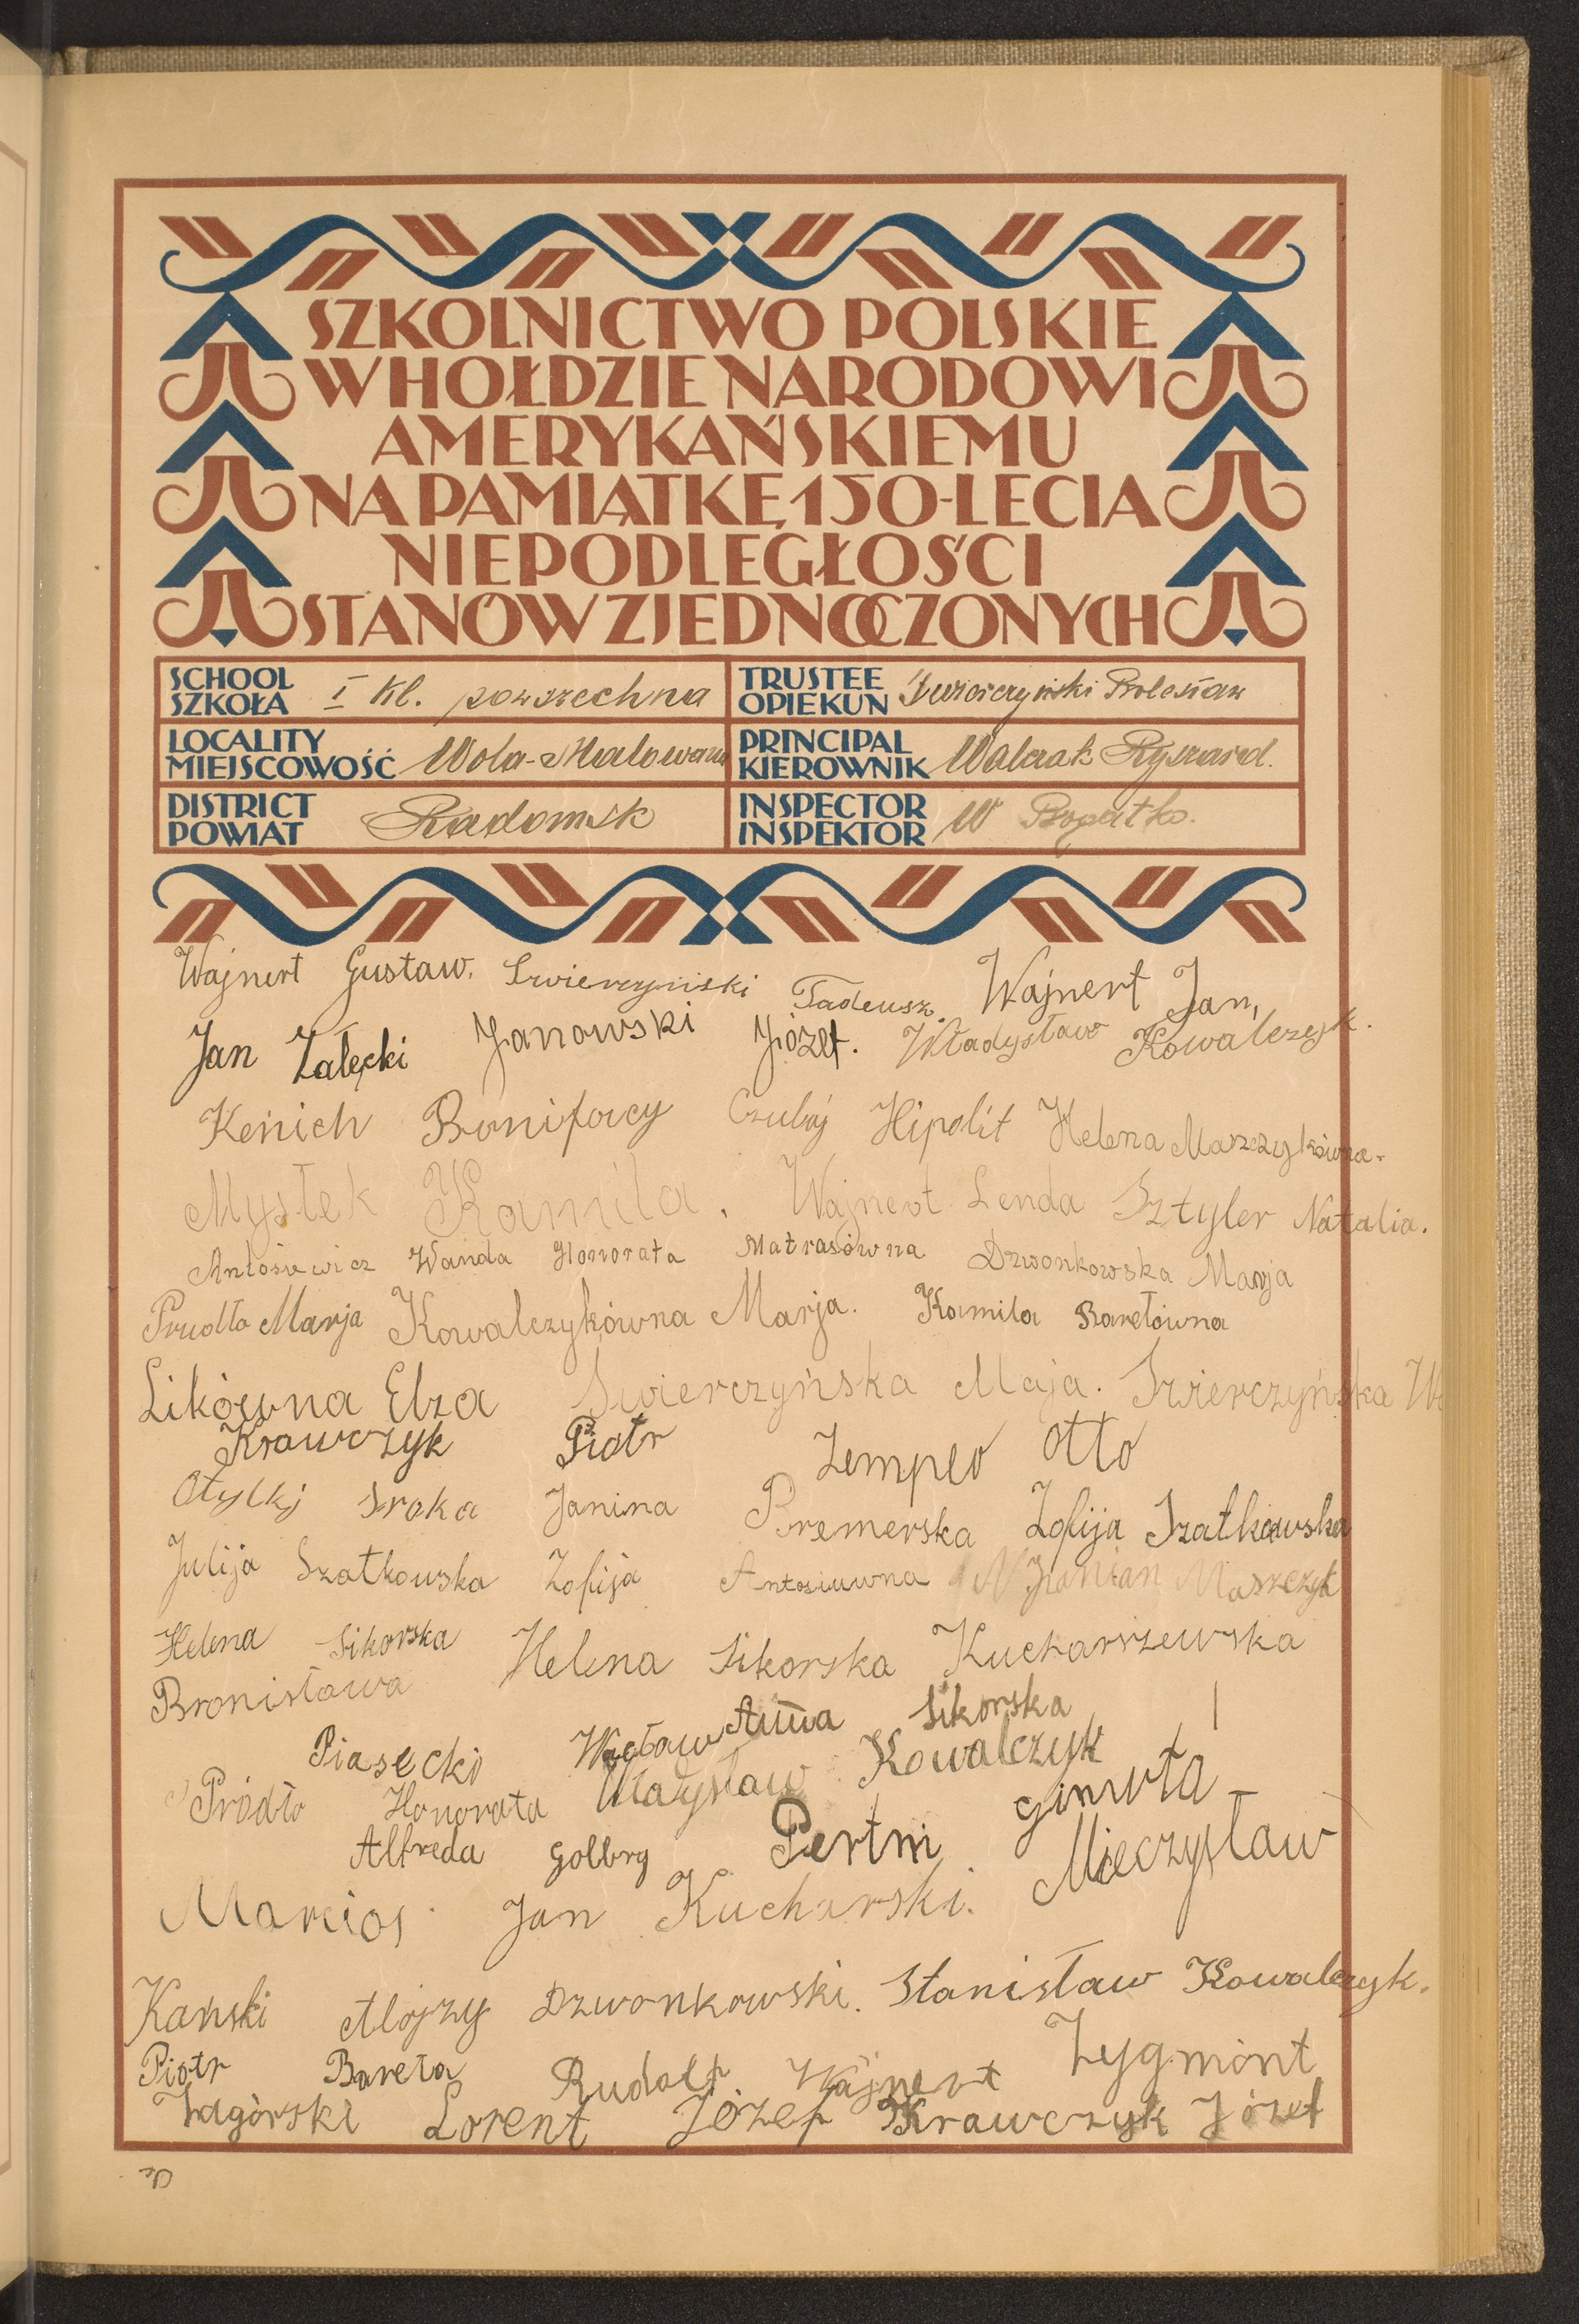 SZKOLNICTWO POLSKIE
W HOŁDZIE NARODOWI
AMERYKAŃSKIEMU
NA PAMIĄTKĘ 150-LECIA
NIEPODLEGŁOŚCI
STANÓW ZJEDNOCZONYCH
SCHOOL SZKOŁA I Kl. powszechna
TRUSTEE OPIEKUN Świerczyński Bolesław
LOCALITY MIEJSCOWOŚĆ Wola-Malowana
PRINCIPAL KIEROWNIK Walczak Ryszard.
DISTRICT POWIAT Radomsk
INSPECTOR INSPEKTOR W Bogatko.
Wajnert Gustaw. Swierczyński Tadeusz. Wajnert Jan,
Jan Załęcki Janowski Józef. Władysław Kowalczyk.
Kenich Bonifacy Czubaj Hipolit Helena Maszczykówna.
Mystek Kamila. Wajnert Lenda Sztyler Natalia.
Antosiewicz Wanda Honorata Matrasówna Dzwonkowska Marja
Prudło Marja Kowalczykówna Marja. Kamila Barełówna
Likówna Elza Swierczyńska Maja. Swierczyńska
Krawczyk Piotr Zempel Otto
Sroka Janina Bremerska Zofija Szatkowska
Julija Szatkowska Zofija Antosiuwna Maszczyk
Helena Sikorska Helena Sikorska Kucharszewska
Bronisława
Anna Sikorska
Piasecki Wacław
Władysław Kowalczyk
Pródło Honorata
Alfreda Golbrg Pertni
Marcioś Jan Kucharski. Mieczysław
Kański Alojzy Dzwonkowski. Stanisław Kowalczyk.
Piotr Bareła Rudolf Wajnert Zygmont
Zagórski Lorent Józef Krawczyk Józef